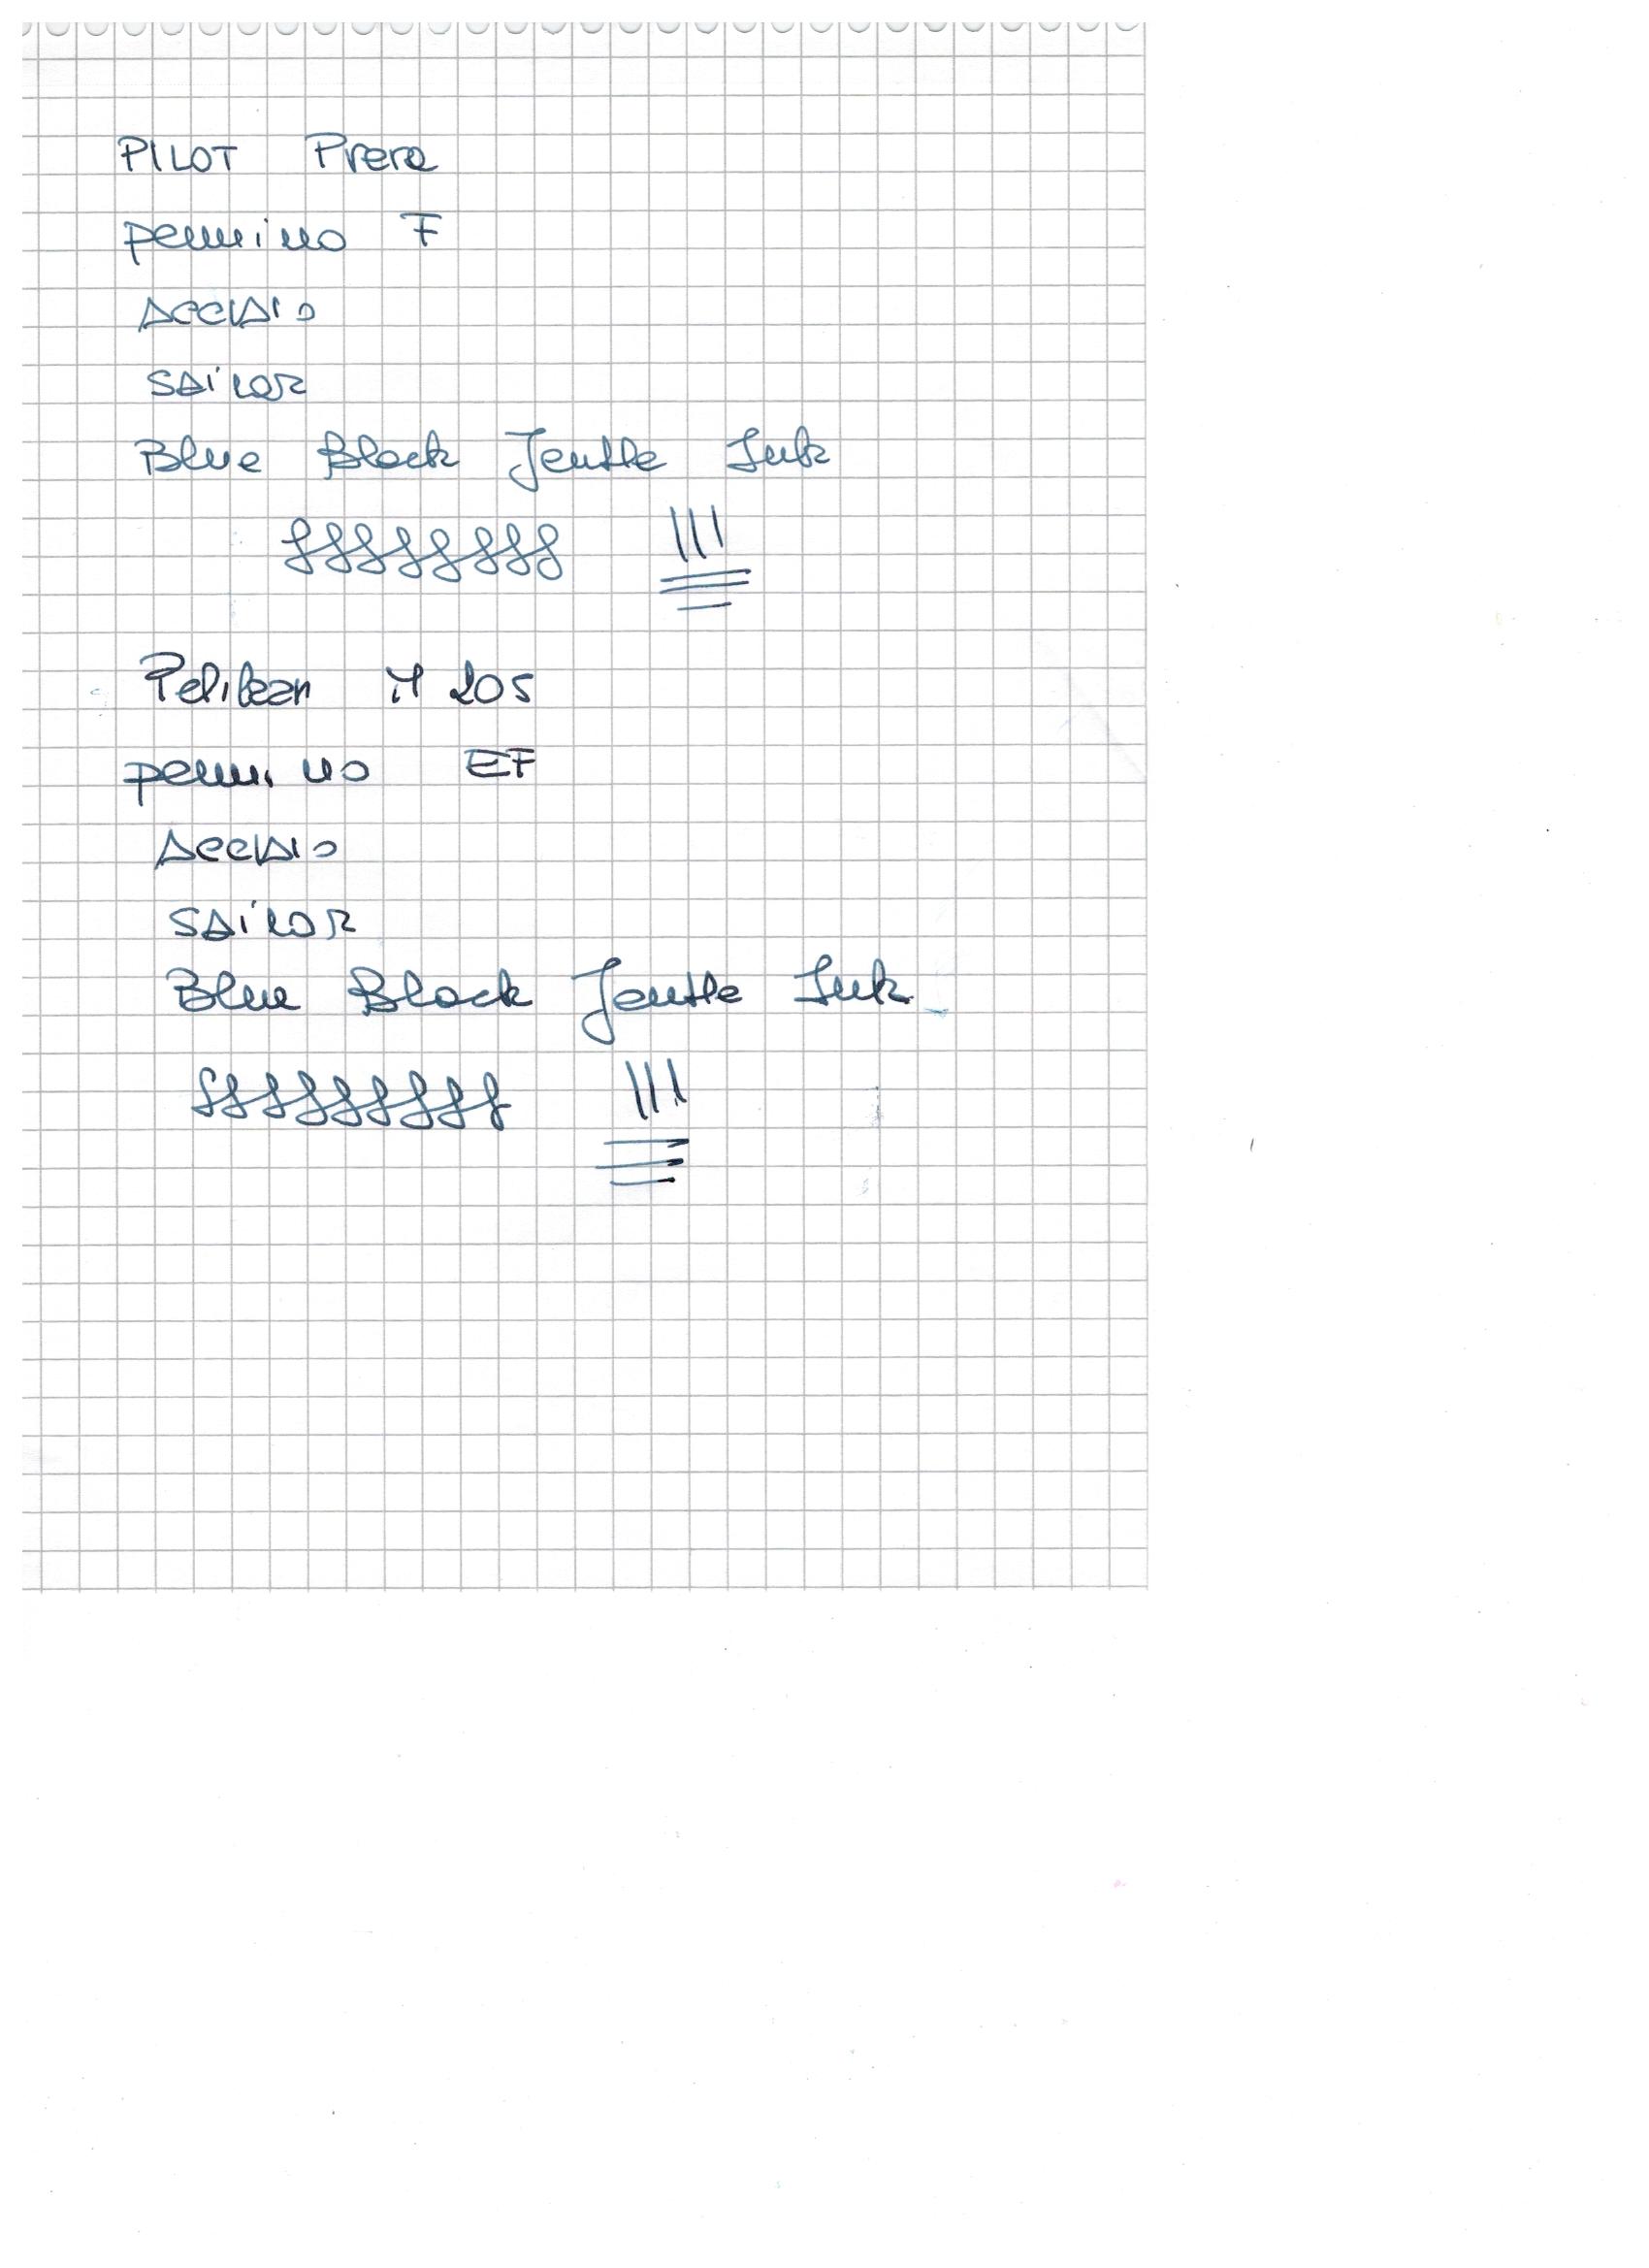 PILOT Prera
pennino F
ACCIAIO
SAILOR
Blue Black Jentle Ink
Pelikan M 205
pennino EF
ACCIAIO
SAILOR
Blue Black Jentle Ink